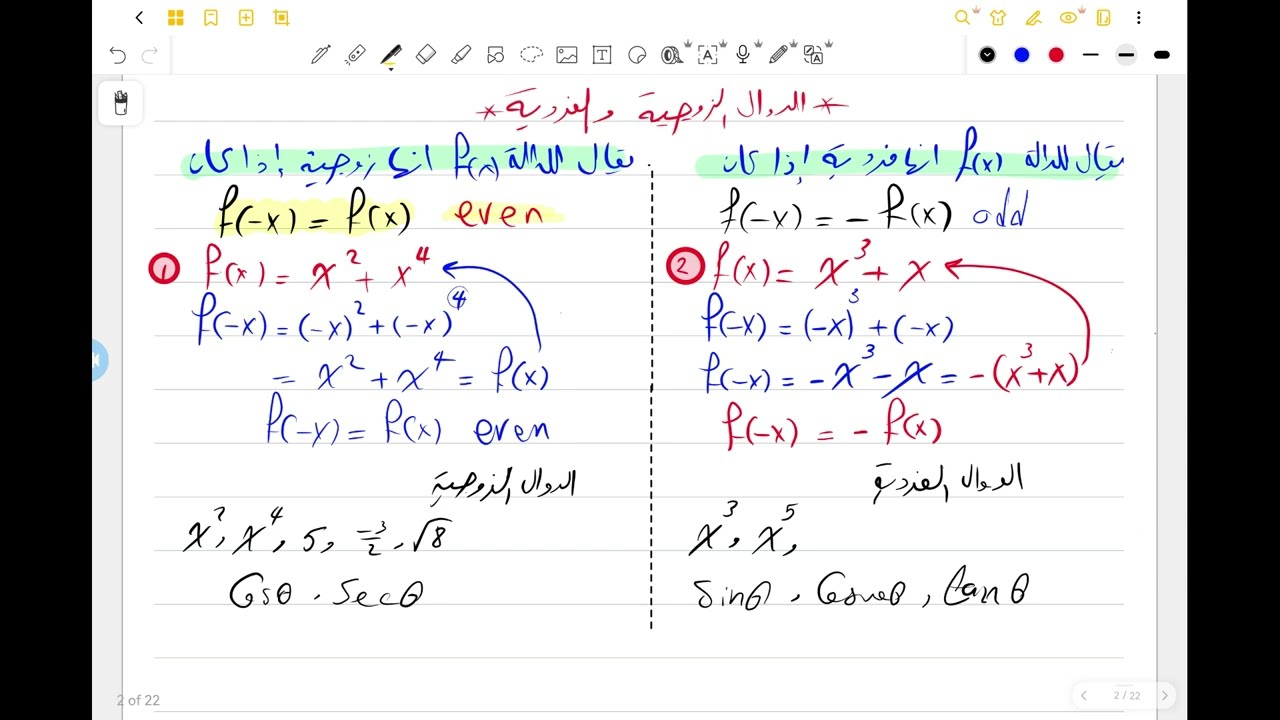 * الدوال الزوجية والفردية *
يقال للدالة f(x) انها زوجية إذا كان
f(-x) = f(x) even
① f(x) = x² + x⁴
f(-x) = (-x)² + (-x)⁴
= x² + x⁴ = f(x)
f(-x) = f(x) even
الدوال الزوجية
x², x⁴, 5, -3/2, √8
Cosθ, Secθ
يقال للدالة f(x) انها فردية إذا كان
f(-x) = - f(x) odd
② f(x) = x³ + x
f(-x) = (-x)³ + (-x)
f(-x) = -x³ - x = -(x³ + x)
f(-x) = - f(x)
الدوال الفردية
x³, x⁵,
Sinθ, , tanθ
2 of 22
2 / 22